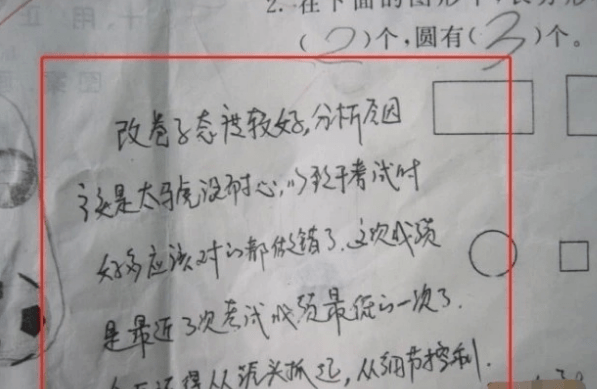 2. 在下面的图形中,长方形
(2)个,圆有(3)个。
改卷子态度较好,分析原因
还是太马虎没耐心,以致于考试时
好多应该对的都做错了.这次成绩
是最近3次考试成绩最低的一次了.
还得从源头抓起,从细节控制.